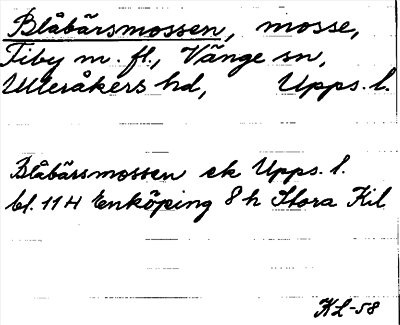 Blåbärsmossen, mosse,
Tiby m. fl., Vänge sn,
Ulleråkers hd, Upps. l.
Blåbärsmossen ek Upps. l.
bl. 11 H Enköping 8 h Stora Kil
KL-58